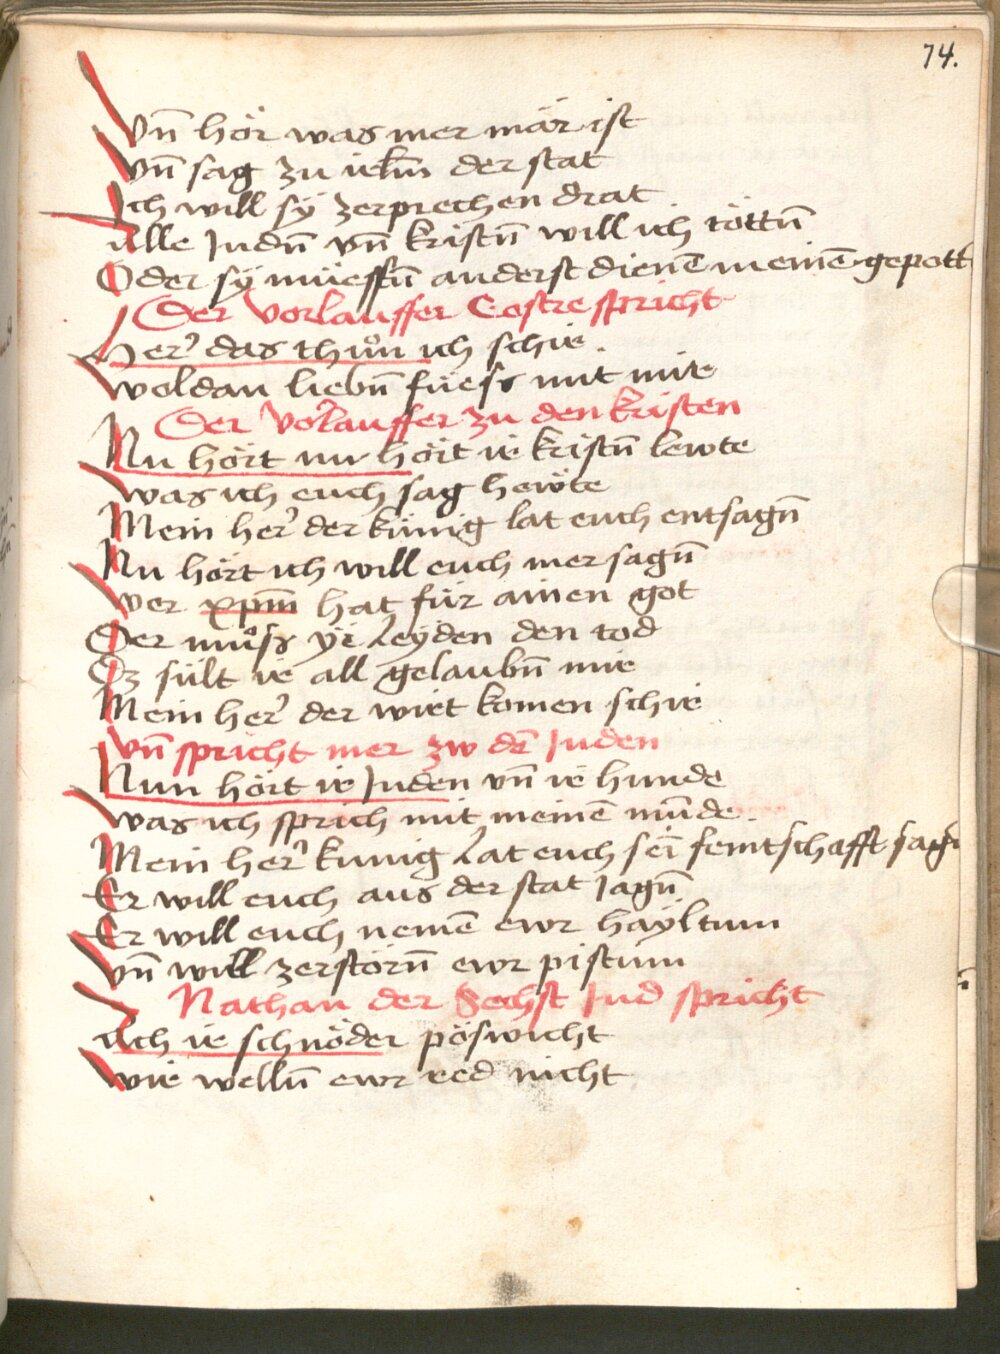 74.
Vn̄ hör was mer mär ist
Vn̄ sag zu irlm̄ der stat
Ich will sÿ zerprechen drat
Alle Judn̄ vn̄ kristn̄ will ich töttn̄
Oder sÿ müessn̄ anderst dienē meinē gepott
Der vorlauffer Costre spricht
Her̓ das thůn ich schir.
Woldan liebn̄ füess mit mir
Der vorlauffer zu den kristen
Nu hört nu hört ir kristn̄ lewte
Was ich euch sag hewte
Mein her̓ der künig lat euch entsagn̄
Nu hört ich will euch mer sagn̄
Wer xpm̄ hat für ainen got
Der můss yi leyden den tod
Dz sült ir all gelaubn̄ mir
Mein her̓ der wirt komen schir
Vn̄ spricht mer zw dē Juden
Nun hört ir Juden vn̄ ir hunde
Was ich sprich mit meinē mu̅de.
Mein her̓ kunig lat euch sei̅ feintschafft sagn̄
Er will euch aus der stat Jagn̄
Er will euch nemē ewr haÿltum
Vn̄ will zerstörn̄ ewr pistum
Nathan der Sechst Jud spricht
Ach ir schnöder pöswicht
Wir welln̄ ewr red nicht